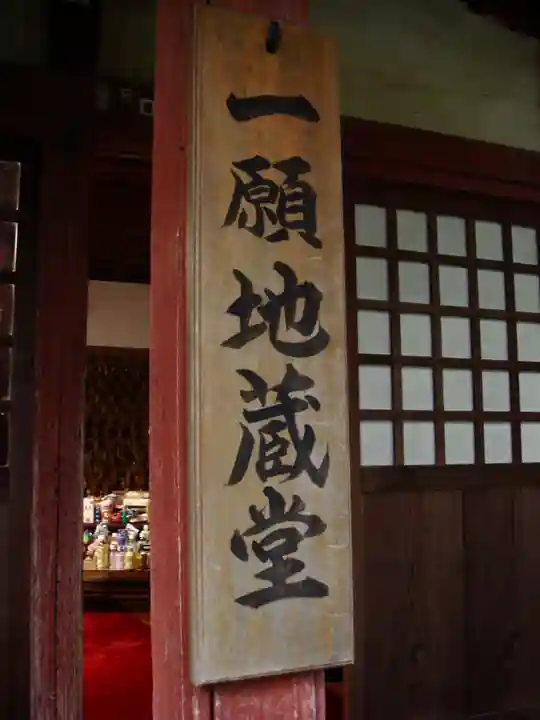 一願地蔵堂